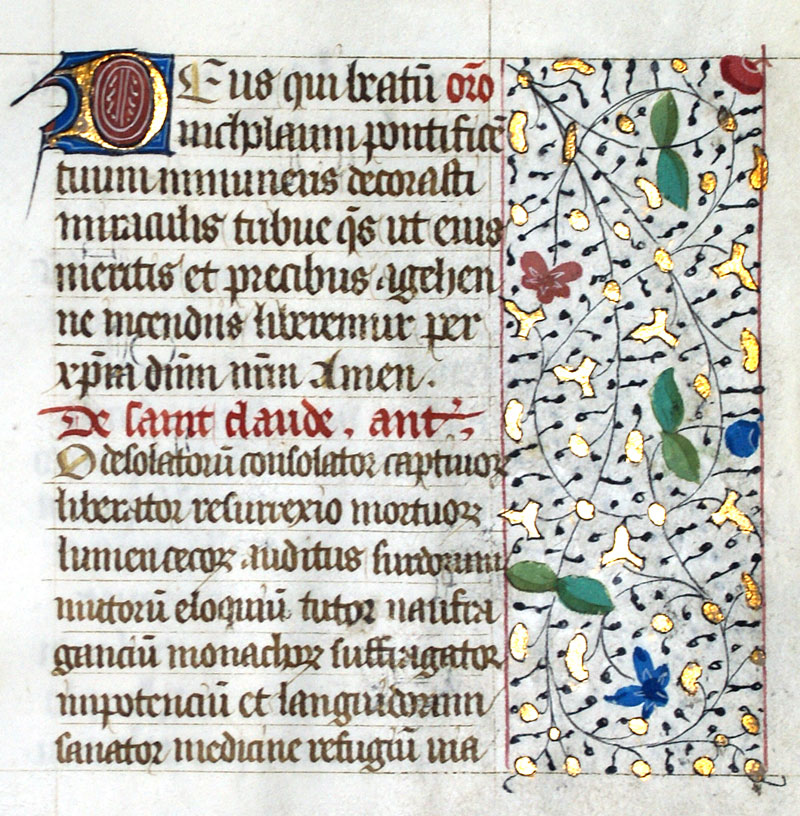 Deus qui beatū oro
nicholaum pontificē
tuum innumeris decorasti
miraculis tribue qs ut eius
meritis et precibus a gehen
ne incendiis liberemur per
xpm dūm nrm Amen.
De saint claude, ant
O desolatorū consolator captiuoꝝ
liberator resurrexio mortuoꝝ
lumen cecoꝝ auditus surdorum
mutorū eloquiū tutor naufra
ganciū monachoꝝ suffragator
impotenciū et languidorum
sanator medicine refugiū uia